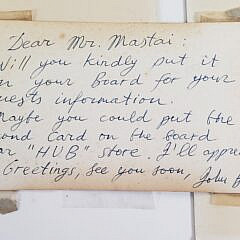 Dear Mr. Mastai:
Will you kindly put it
on your board for your
uests information.
Maybe you could put the
ond card on the board
ar "HUB" store. I'll appre
Greetings, see you soon, John